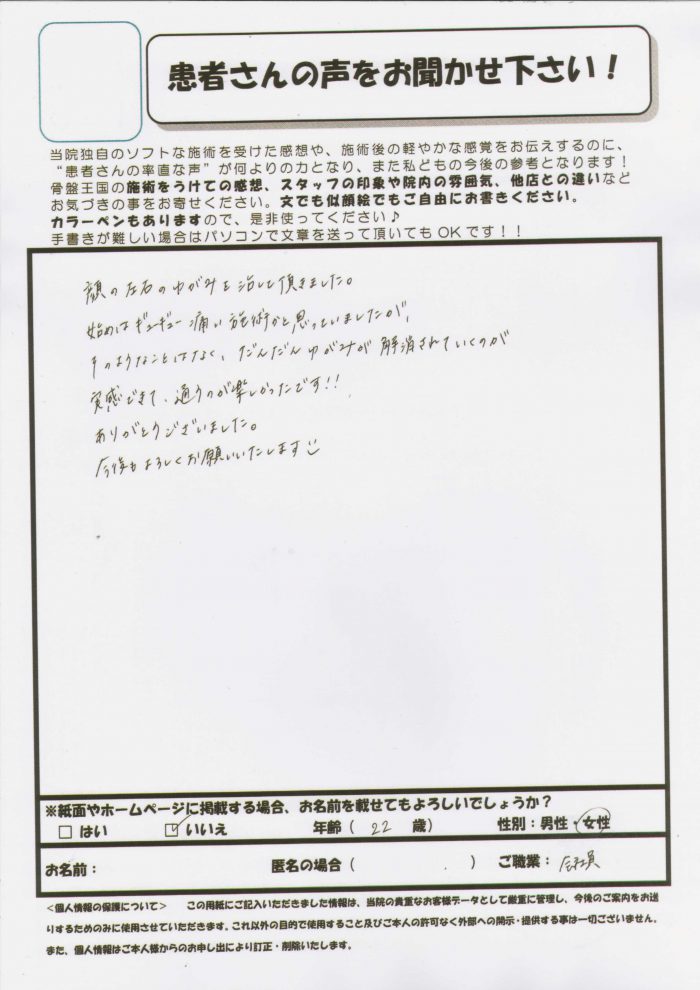 患者さんの声をお聞かせ下さい！
当院独自のソフトな施術を受けた感想や、施術後の軽やかな感覚をお伝えするのに、
“患者さんの率直な声”が何よりの力となり、また私どもの今後の参考となります！
骨盤王国の施術をうけての感想、スタッフの印象や院内の雰囲気、他店との違いなど
お気づきの事をお寄せください。文でも似顔絵でもご自由にお書きください。
カラーペンもありますので、是非使ってください♪
手書きが難しい場合はパソコンで文章を送って頂いてもOKです！！
顔の左右のゆがみを治して頂きました。
始めはギューギュー痛い施術かと思っていましたが、
そのようなことはなく、だんだんゆがみが解消されていくのが
実感できて、通うのが楽しかったです!!
ありがとうございました。
今後もよろしくお願いいたします
※紙面やホームページに掲載する場合、お名前を載せてもよろしいでしょうか？
□ はい ☑ いいえ 年齢（ 22 歳） 性別：男性・女性
お名前： 匿名の場合（ ） ご職業：会社員
＜個人情報の保護について＞ この用紙にご記入いただきました情報は、当院の貴重なお客様データとして厳重に管理し、今後のご案内をお送
りするためのみに使用させていただきます。これ以外の目的で使用すること及びご本人の許可なく外部への開示・提供する事は一切ございません。
また、個人情報はご本人様からのお申し出により訂正・削除いたします。